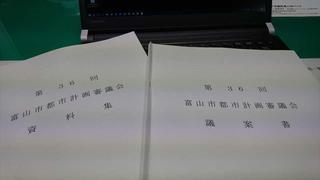 第 36 回
富山市都市計画審議会
資 料 集
第 36 回
富山市都市計画審議会
議 案 書